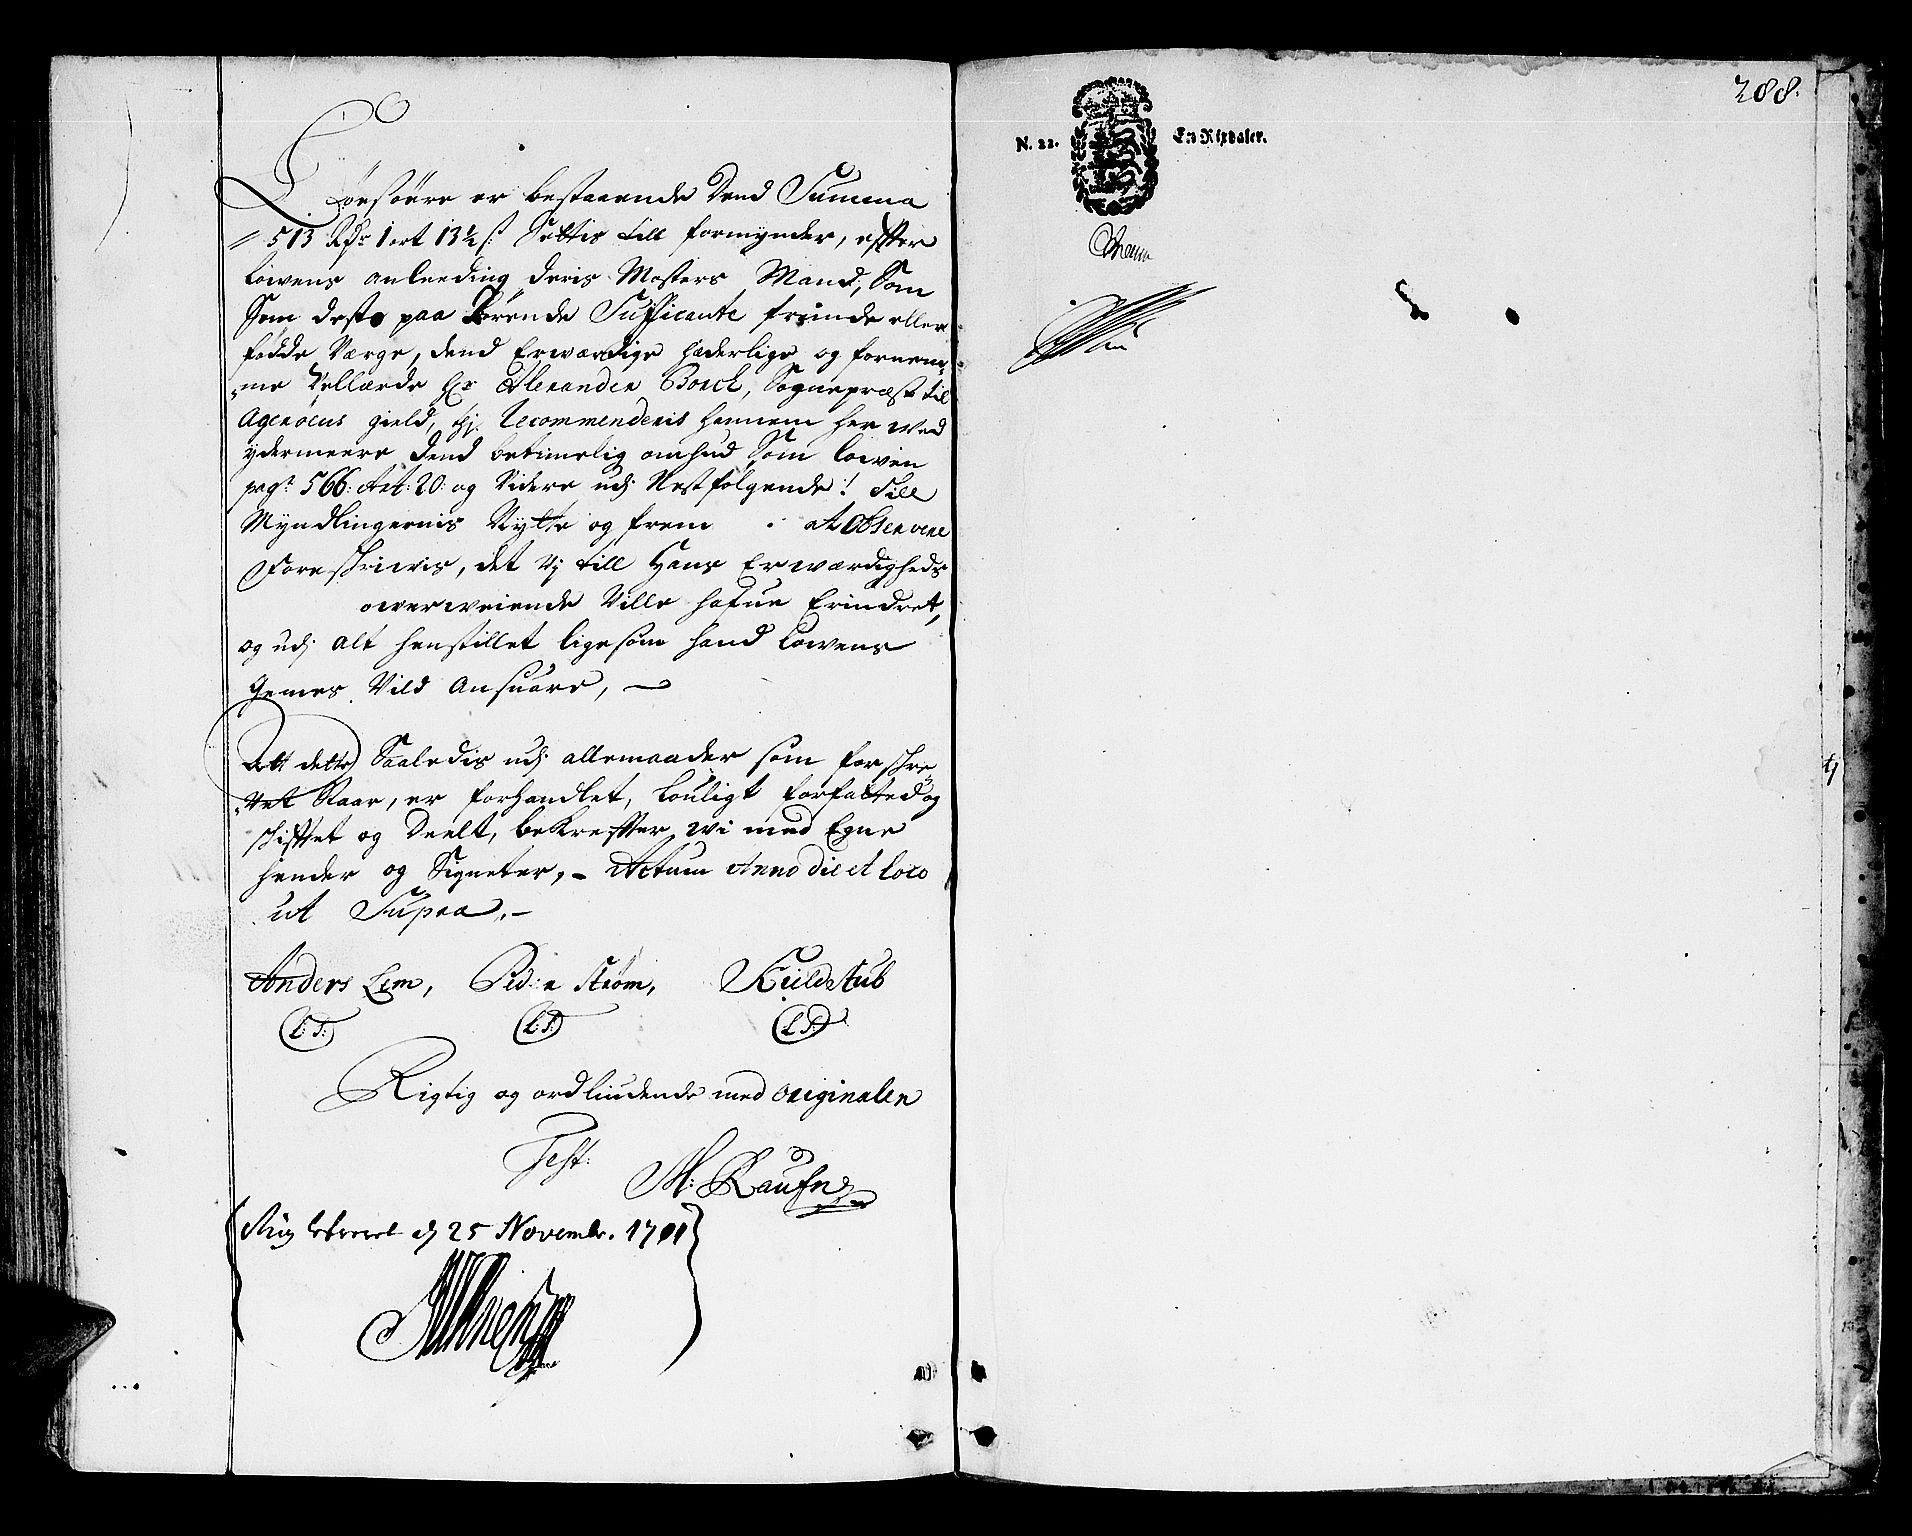 Løesøere er bestaaende Dend Summa
513 Rdr 1 ort 13½ s: Settis till formynder, effter
Lowens anleeding deris Mosters Mand, Som
Som deste paa Børende Sufficante frinde eller
fødde Værge, dend Erwærdige hæderlige og fornem-
me Vellærde Hr Alexander Borch, Sognepræst til
Agerøens gield, Recommenderis hannem her wed
ydermeere Dend betimelig omhud Som Lowen
pag: 566: Art: 20: og Videre udj Nestfølgende! Till
Myndlingernis Nytte og frem At Observere
Foreskriwis, det Vj till Hans Erwærdigheds
owerweiende Ville hafue Erindret,
og udj alt henstillet ligesom hand Lowens
Gemes Vild Ansuare, —
Att dette Saaledis udj allemaader som forskre-
vet Staar, er forhandlet, Louligt forfatted og
skifftet og Deelt, bekreffter wi med Egne
hender og Signeter, - Actum Anno die et loco
ut Supra. -
Anders Lem, Ped: Strøm, Kieldstub
(L:S:) (L:S:) (L:S:)
Rigtig og ordliudende med originalen
Test:
M: Raufn
d 25 Novembr. 1701
288.
N. 22. En Rixdaler.